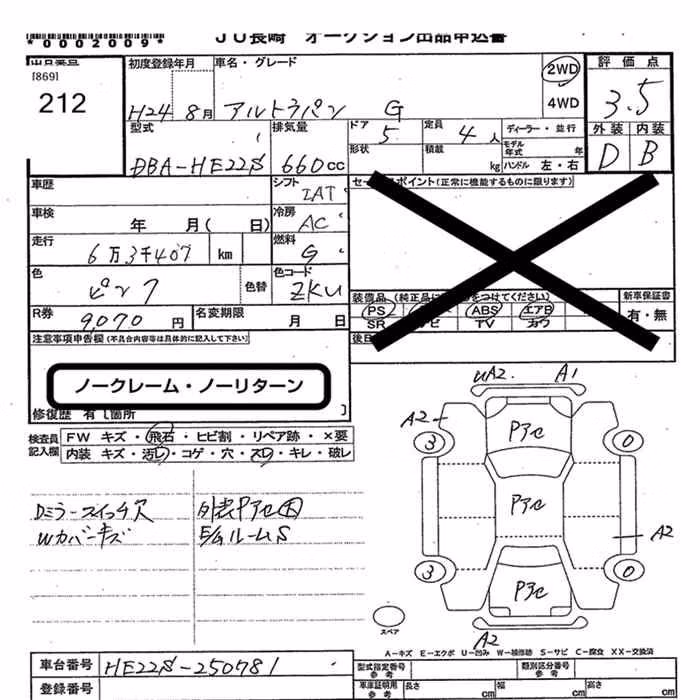 *0002009*
JU長崎 オークション出品申込書
[869]
212
初度登録年月 車名・グレード
H24 8月 アルトラパン G
2WD
4WD
評価点
3.5
外装 内装
D B
型式 DBA-HE22S
排気量 660cc
ドア 5
定員 4人
ディーラー・並行
モデル年式 年
形状
積載 kg
ハンドル 左・右
車歴
シフト IAT
セールスポイント(正常に機能するものに限ります)
車検 年 月( 日)
冷房 AC
走行 6万3千407 km
燃料 G
色 ピンク
色替
色コード ZKU
装備品 (純正品に をつけてください)
新車保証書
有・無
PS ABS エアB
SR ナビ TV カワ
R券 9,070円
名変期限 月 日
注意事項申告欄(不具合内容等は具体的に記入して下さい)
後日
ノークレーム・ノーリターン
修復歴 有 [箇所 ]
検査員記入欄
FW キズ・飛石・ヒビ割・リペア跡・×要
内装 キズ・汚レ・コゲ・穴・スレ・キレ・破レ
Dミラースイッチ穴
Wカバーキズ
外装Pアセ大
E/GルームS
UA2. A1
A2
3
0
Pアセ
Pアセ
A2
3
0
Pアセ
A2
スペア
A-キズ E-エクボ U-凹み W-補修跡 S-サビ C-腐食 XX-交換済
車台番号 HE22S-250781
登録番号
型式指定番号 参考
類別区分番号 参考
車庫証明用 参考
長さ cm
幅 cm
高さ cm